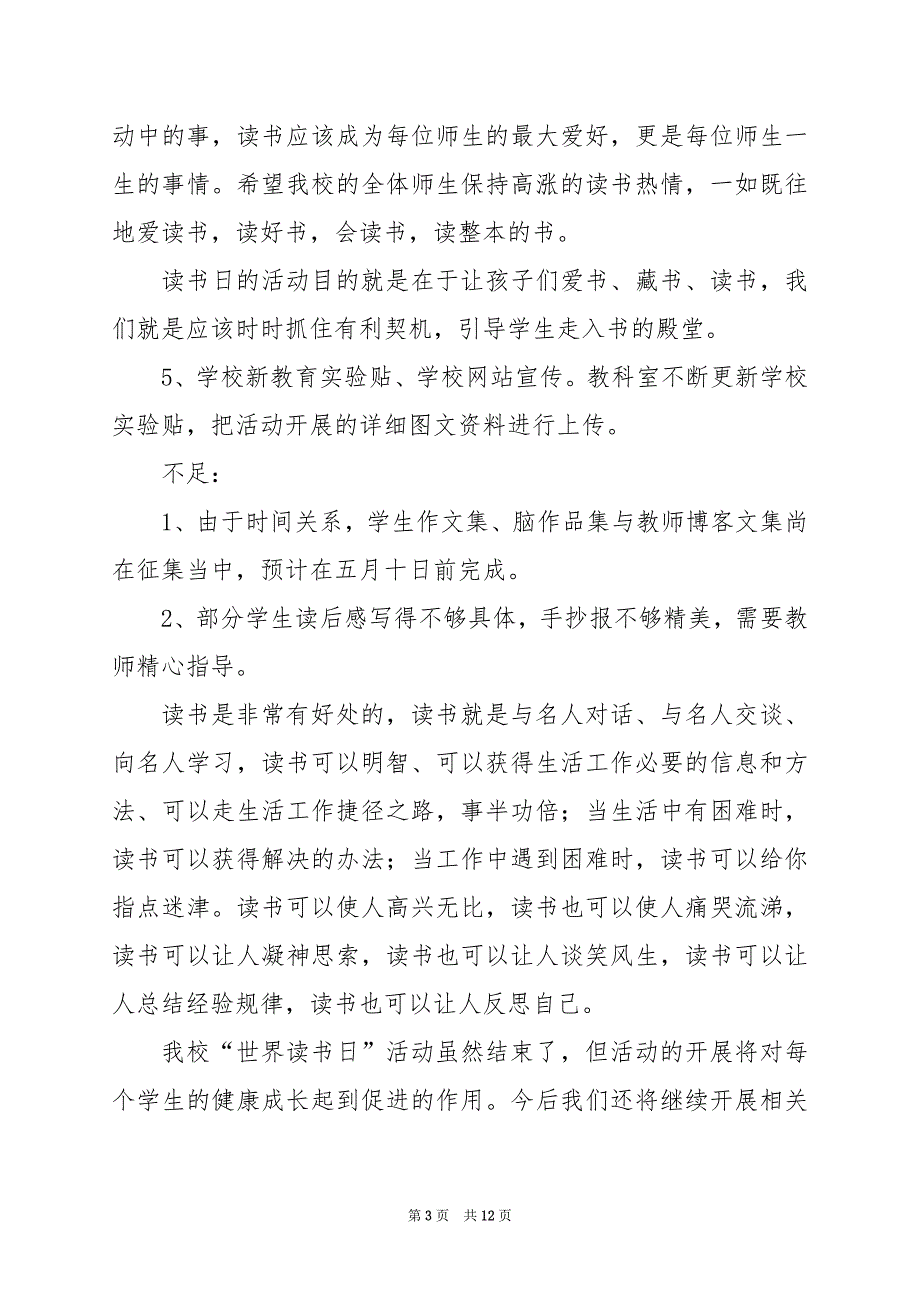 动中的事，读书应该成为每位师生的最大爱好，更是每位师生一
生的事情。希望我校的全体师生保持高涨的读书热情，一如既往
地爱读书，读好书，会读书，读整本的书。
读书日的活动目的就是在于让孩子们爱书、藏书、读书，我
们就是应该时时抓住有利契机，引导学生走入书的殿堂。
5、学校新教育实验贴、学校网站宣传。教科室不断更新学校
实验贴，把活动开展的详细图文资料进行上传。
不足：
1、由于时间关系，学生作文集、脑作品集与教师博客文集尚
在征集当中，预计在五月十日前完成。
2、部分学生读后感写得不够具体，手抄报不够精美，需要教
师精心指导。
读书是非常有好处的，读书就是与名人对话、与名人交谈、
向名人学习，读书可以明智、可以获得生活工作必要的信息和方
法、可以走生活工作捷径之路，事半功倍；当生活中有困难时，
读书可以获得解决的办法；当工作中遇到困难时，读书可以给你
指点迷津。读书可以使人高兴无比，读书也可以使人痛哭流涕，
读书可以让人凝神思索，读书也可以让人谈笑风生，读书可以让
人总结经验规律，读书也可以让人反思自己。
我校“世界读书日”活动虽然结束了，但活动的开展将对每
个学生的健康成长起到促进的作用。今后我们还将继续开展相关
第 3 页 共 12 页